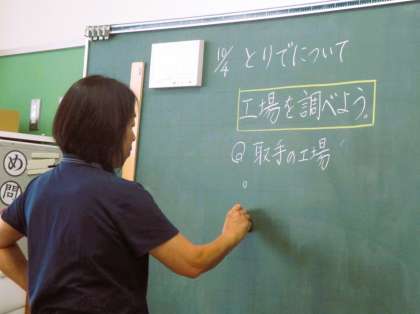 10/4 とりでについて
工場を調べよう。
Q 取手の工場
。
め
問